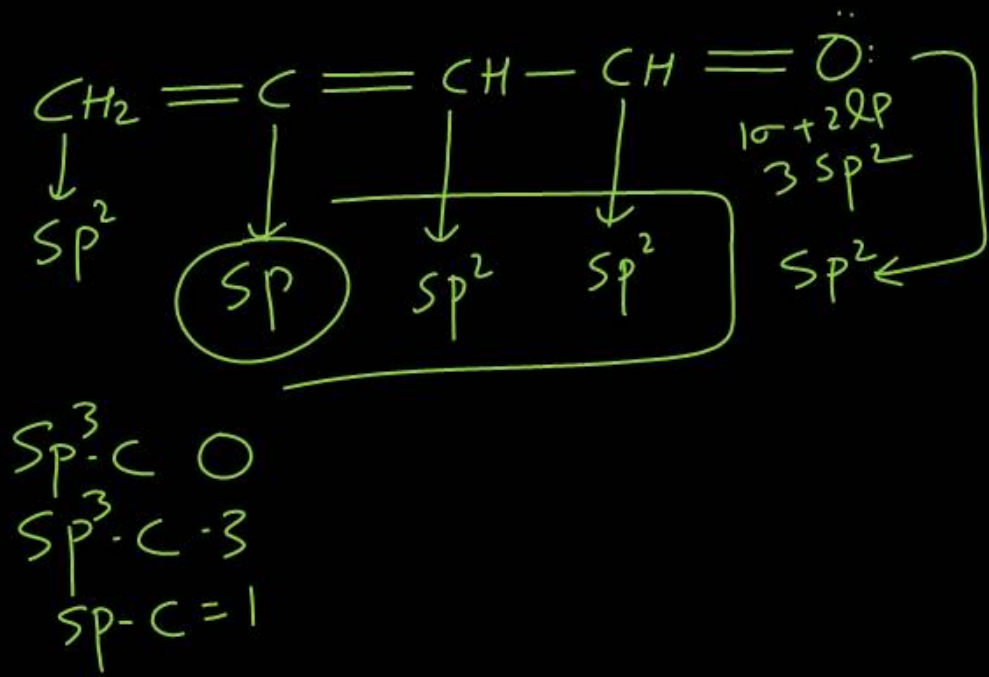 CH₂ = C = CH – CH = Ö:
1σ + 2lp
3 Sp²
Sp² Sp Sp² Sp² Sp²
Sp³-C 0
Sp³-C-3
Sp-C=1